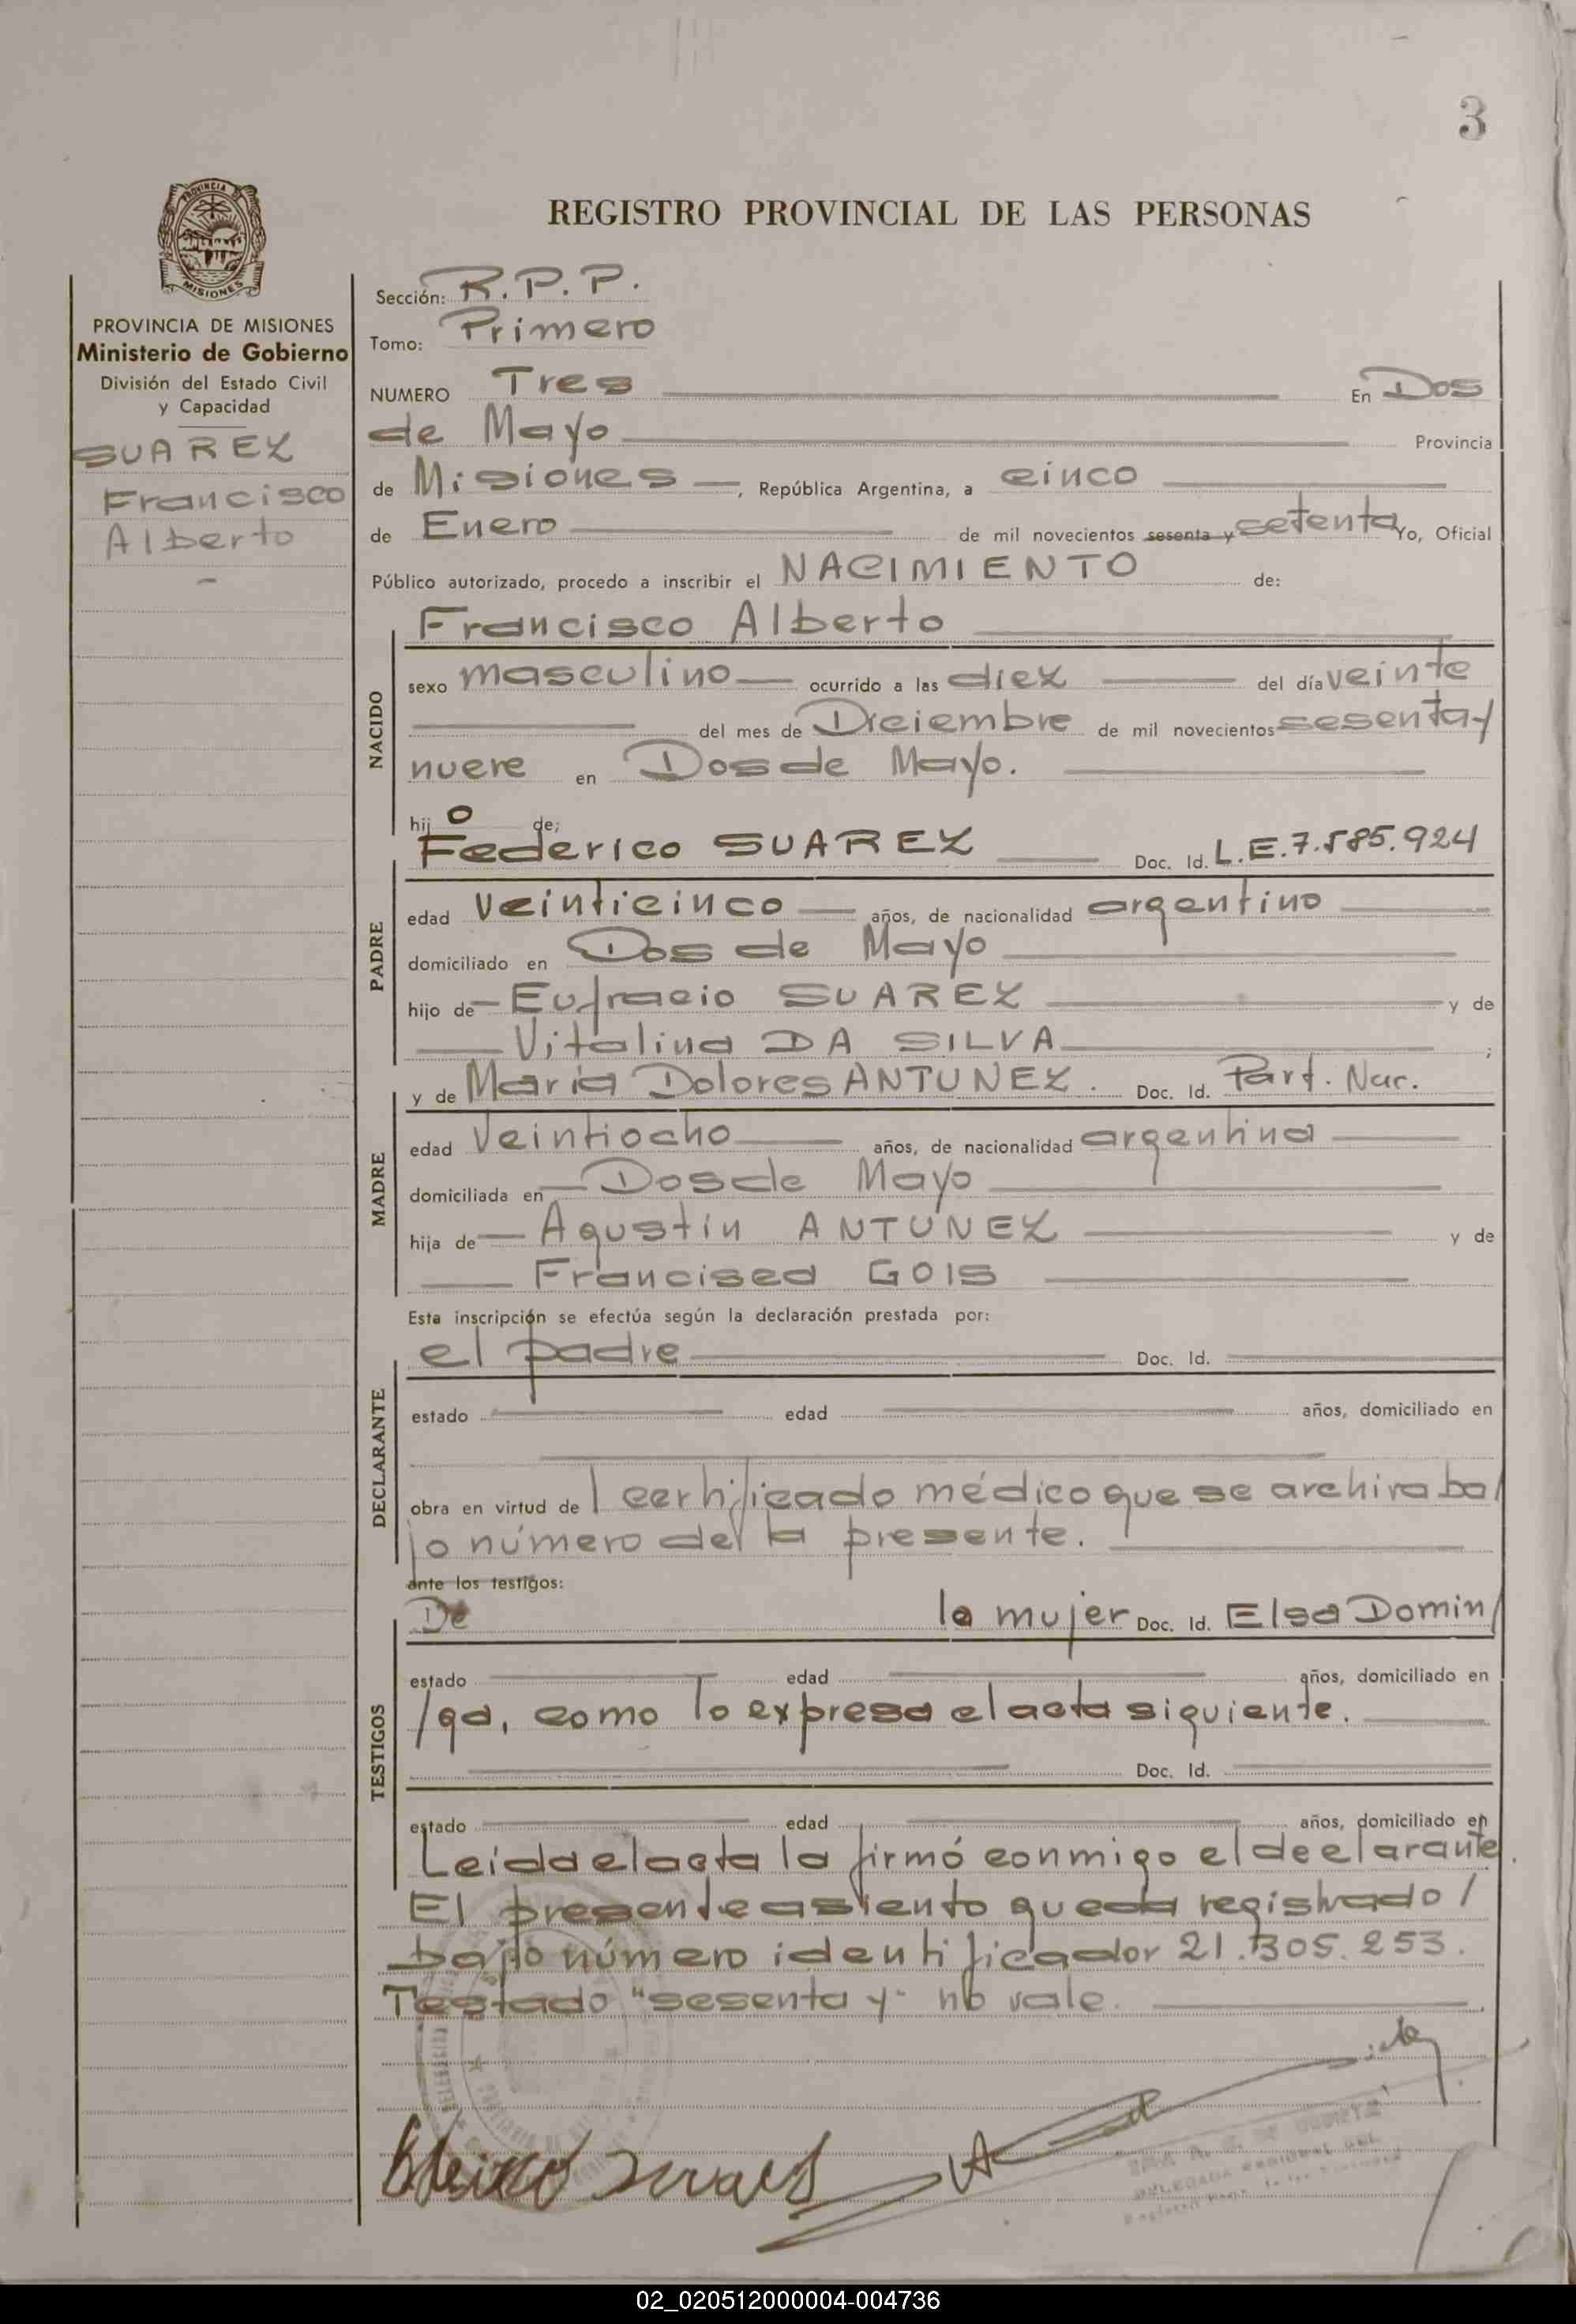 3
REGISTRO PROVINCIAL DE LAS PERSONAS
PROVINCIA DE MISIONES
Ministerio de Gobierno
División del Estado Civil
y Capacidad
SUAREZ
Francisco
Alberto
Sección: R.P.P.
Tomo: Primero
NUMERO Tres En Dos
de Mayo Provincia
de Misiones, República Argentina, a cinco
de Enero de mil novecientos sesenta y setenta Yo, Oficial
Público autorizado, procedo a inscribir el NACIMIENTO de:
Francisco Alberto
NACIDO
sexo masculino ocurrido a las diez del día veinte
del mes de Diciembre de mil novecientos sesenta y
nueve en Dos de Mayo.
hijo de;
Federico SUAREZ Doc. Id. L.E. 7.585.924
PADRE
edad veinticinco años, de nacionalidad argentino
domiciliado en Dos de Mayo
hijo de Eufracio SUAREZ y de
Vitalina DA SILVA ;
y de María Dolores ANTUNEZ. Doc. Id. Part. Nac.
MADRE
edad veintiocho años, de nacionalidad argentina
domiciliada en Dos de Mayo
hija de Agustín ANTUNEZ y de
Francisca GOIS
Esta inscripción se efectúa según la declaración prestada por:
el padre Doc. Id.
DECLARANTE
estado edad años, domiciliado en
obra en virtud del certificado médico que se archiva ba/
jo número de la presente.
ante los testigos:
De la mujer Doc. Id. Elsa Domin/
TESTIGOS
estado edad años, domiciliado en
/ga, como lo expresa el acta siguiente.
Doc. Id.
estado edad años, domiciliado en
Leída el acta la firmó conmigo el declarante.
El presente asiento queda registrado /
bajo número identificador 21.305.253.
Testado "sesenta y" no vale.
02_020512000004-004736